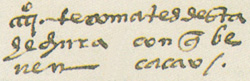 tecomates desta
hechura con q̃ be
uen cacao /.